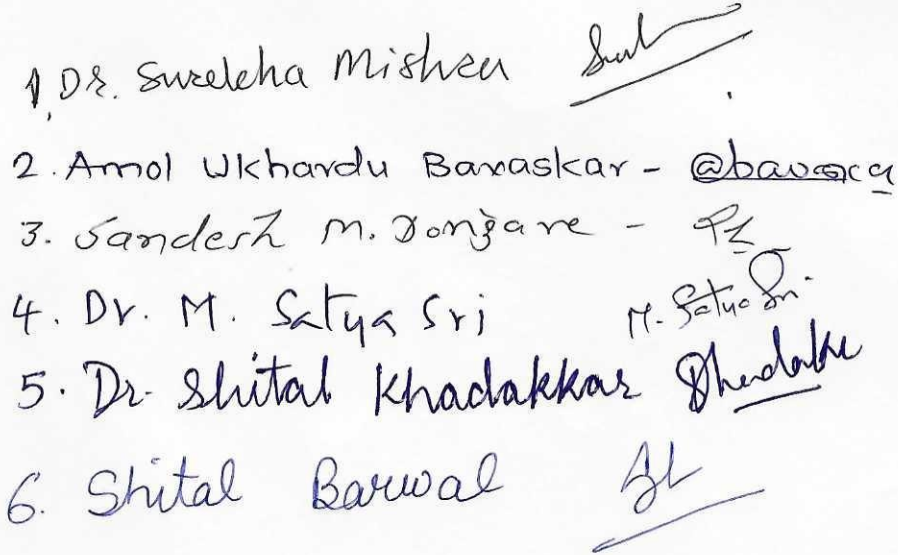 1. Dr. Surekha Mishra
2. Amol Ukhardu Bavaskar - @bavasca
3. Sandesh M. Dongare -
4. Dr. M. Satya Sri M. Satya Sri.
5. Dr. Shital Khadakkar
6. Shital Barwal